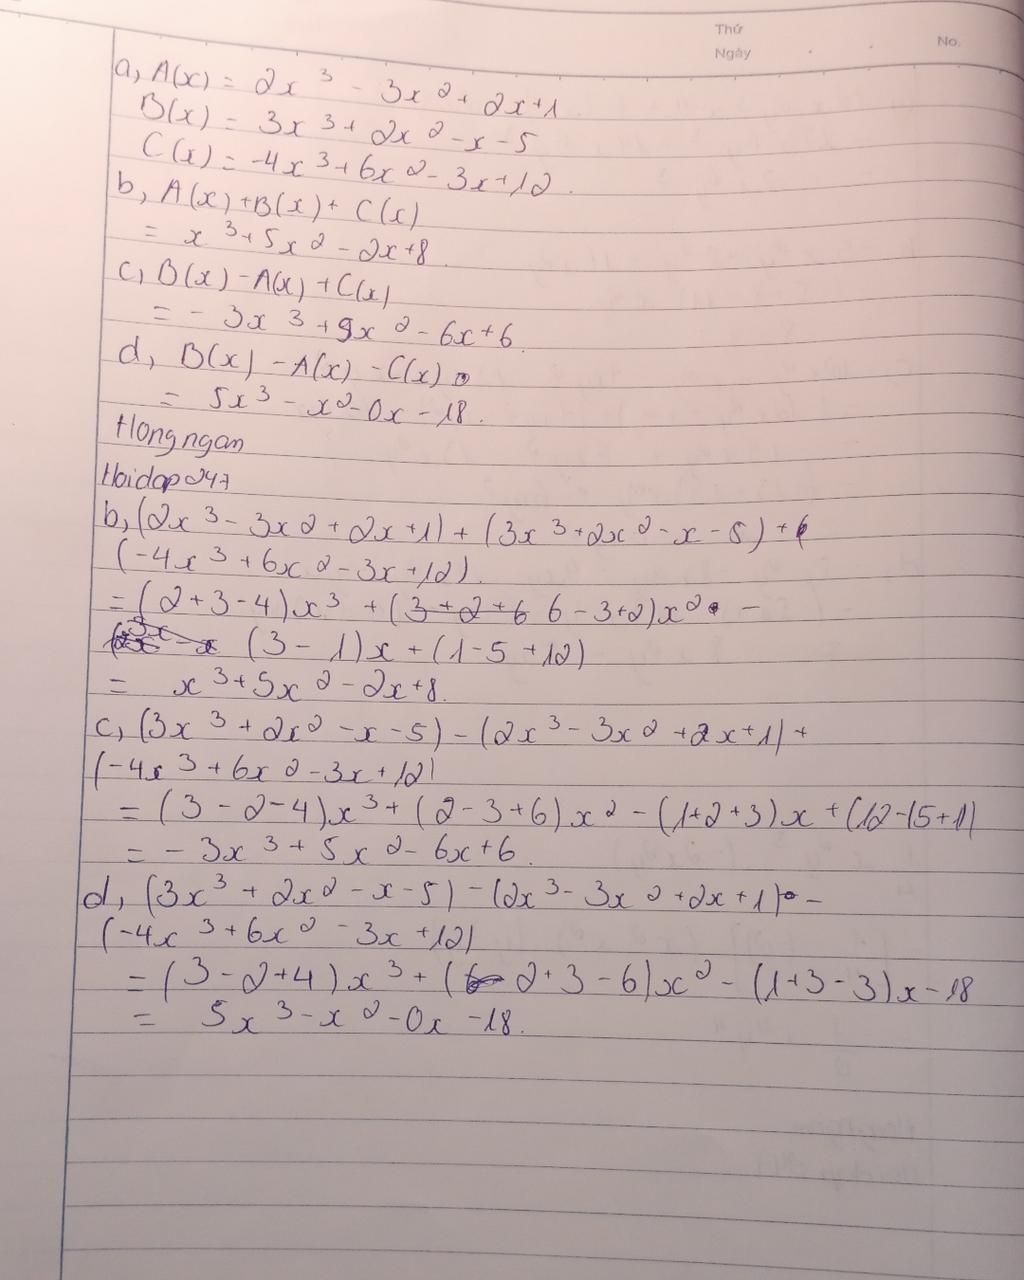 Thứ
Ngày
No.
a, A(x) = 2x³ - 3x² + 2x+1
B(x) = 3x³ + 2x² - x - 5
C(x) = -4x³ + 6x² - 3x+12.
b, A(x) +B(x) + C(x)
= x³ + 5x² - 2x+8.
c, B(x) - A(x) + C(x)
= - 3x³ + 9x² - 6x + 6.
d, B(x) - A(x) - C(x)
= 5x³ - x² - 0x - 18.
Hongngan
Hoidap247
b, (2x³ - 3x² + 2x + 1) + (3x³ + 2x² - x - 5) +
(-4x³ + 6x² - 3x + 12).
= (2+3-4)x³ + (3+2+6 6 - 3+2)x² -
(3 - 1)x + (1-5+12)
= x³ + 5x² - 2x+8.
c, (3x³ + 2x² - x - 5) - (2x³ - 3x² + 2x+1) +
(-4x³ + 6x² - 3x + 12)
= (3 - 2 - 4)x³ + (2 - 3 + 6)x² - (1+2+3)x + (12-(5+1)
= - 3x³ + 5x² - 6x + 6.
d, (3x³ + 2x² - x - 5) - (2x³ - 3x² + 2x + 1) -
(-4x³ + 6x² - 3x + 12)
= (3 - 2+4)x³ + (2+3 - 6)x² - (1+3 - 3)x - 18
= 5x³ - x² - 0x - 18.